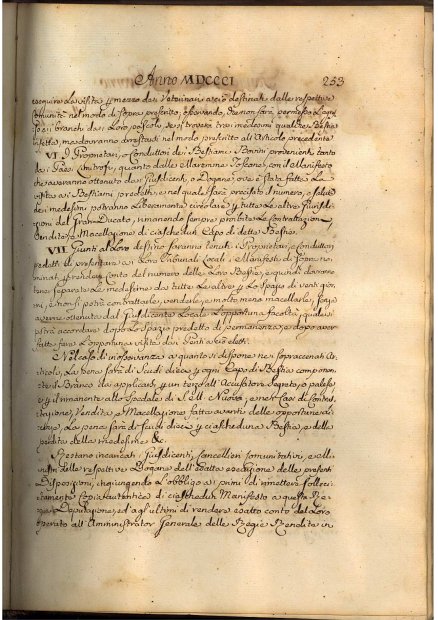 Anno MDCCCI 253
eseguire la visita per mezzo dei Veterinari a ciò destinati dalle respettive
Comunità nel modo di sopra prescritto; osservando, che non sarà permesso l'ingres-
so ai branchi dai Loro pascoli, se si troverà tra i medesimi qualche Bestia
infetta, ma dovranno arrestarsi nel modo prescritto all'Articolo precedente
VI. I Proprietari, o Conduttori dei Bestiami Bovini provenienti tanto
dai Paesi limitrofi, quanto dalle Maremme Toscane, con il Manifesto
che averanno ottenuto dai Jusdicenti, o Dogane, ove è stata fatta La
visita ai Bestiami predetti, e nel quale sarà precisato il numero, e salute
dei medesimi potranno Liberamente circolare per tutte Le altre Giurisdi-
zioni del Gran-Ducato, rimanendo sempre proibite Le Contrattazioni,
Vendite, e Macellazione di ciaschedun Capo di dette Bestie.
VII. Giunti al Loro destino saranno tenuti i Proprietari, e Conduttori
predetti di presentare ai Loro Tribunali Locali i Manifesti di sopra no-
minati, e render Conto del numero delle Loro Bestie, e quindi dovranno
tener separate Le medesime da tutte Le altre per Lo spazio di venti gior-
ni, e non si potrà contrattarle, venderle, e molto meno macellarle, senza
averne ottenuta dal Jusdicente Locale L'opportuna facoltà, quale si
potrà accordare dopo Lo Spazio predetto di permanenza, e dopo aver
fatta fare L'opportuna visita dai Periti a ciò eletti.
Nel caso di inosservanza a quanto si dispone nei sopraccennati Ar-
ticoli, La pena sarà di Scudi dieci per ogni Capo di Bestia componen-
te il Branco da applicarsi per un terzo all'Accusatore segreto, o palese
e per il rimanente allo Spedale di S. M. Nuova, e nel Caso di Contrat-
tazione, Vendita, e Macellazione fatta avanti delle opportune di-
, La pena sarà di scudi dieci per ciascheduna Bestia, e della
perdita della medesima &c.
Restano incaricati i Jusdicenti, Cancellieri Comunitativi, e Mi-
nistri delle respettive Dogane dell'esatta esecuzione delle presenti
Disposizioni, ingiungendo L'obbligo ai primi di rimettere solleci-
tamente Copia autentica di ciaschedun Manifesto a questa Re-
gia Deputazione, ed agl'ultimi di rendere esatto conto del Loro
operato all'Amministrator Generale delle Regie Rendite in